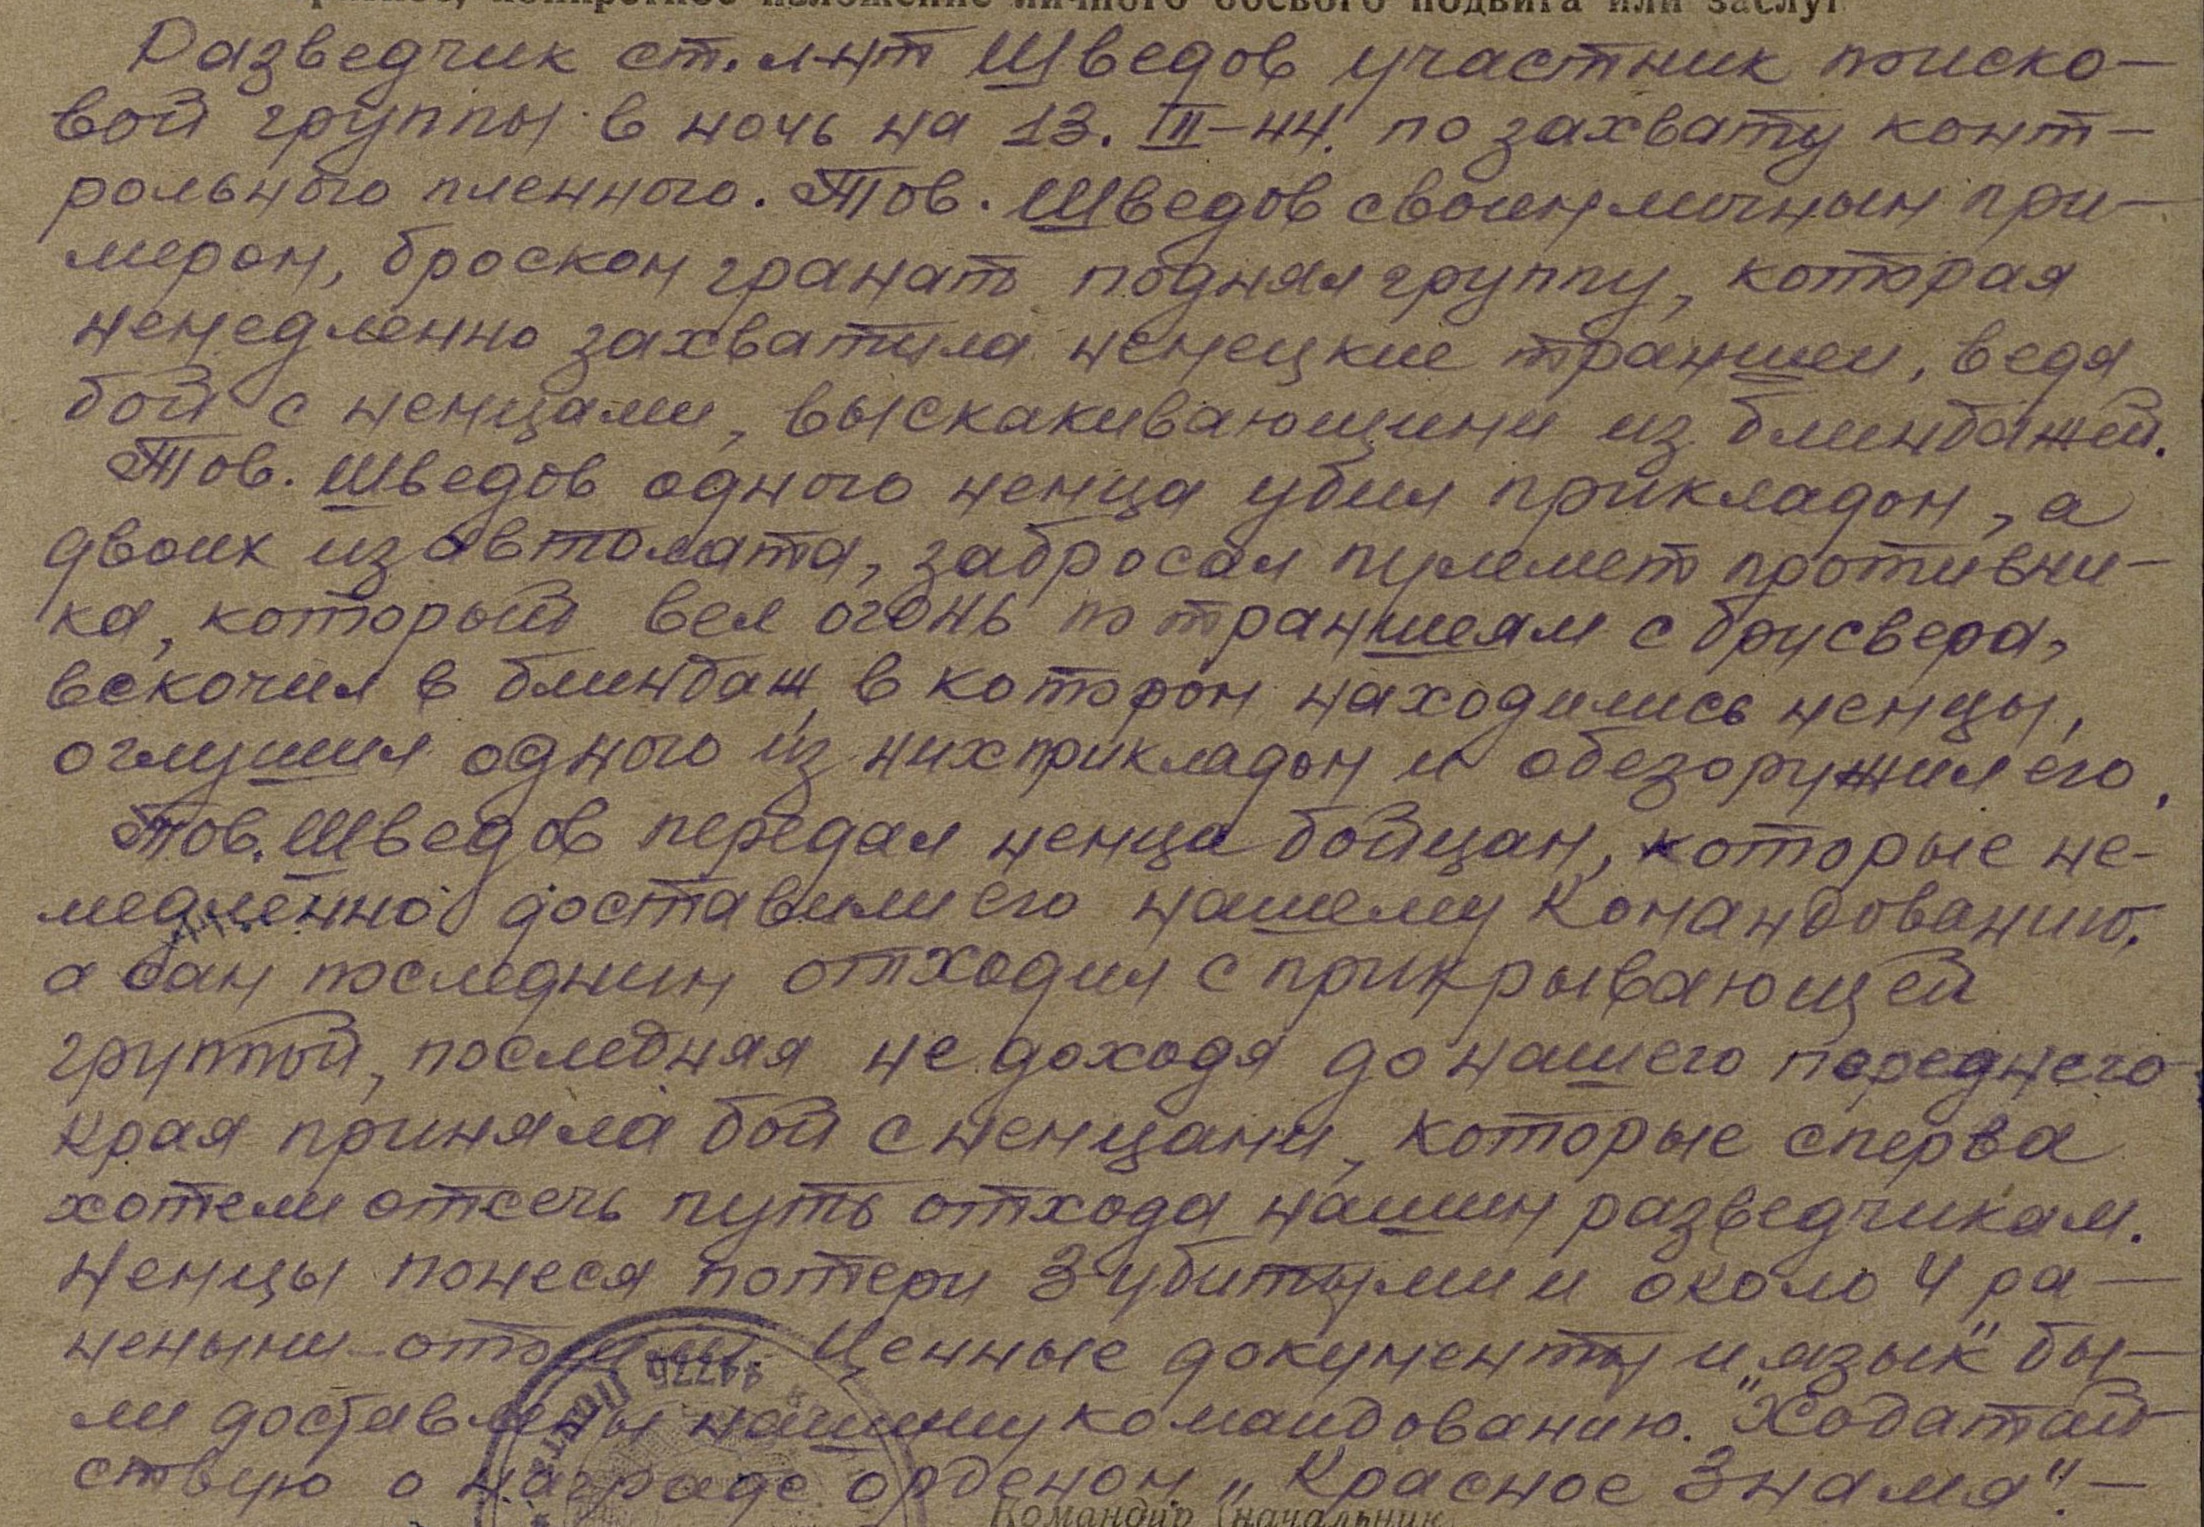 конкретное изложение личного боевого подвига или заслуг
Разведчик ст. л-нт Шведов участник поиско-
вой группы в ночь на 13. III-44. по захвату конт-
рольного пленного. Тов. Шведов своим личным при-
мером, броском гранат поднял группу, которая
немедленно захватила немецкие траншеи, ведя
бой с немцами, выскакивающими из блиндажей.
Тов. Шведов одного немца убил прикладом, а
двоих из автомата, забросал пулемет противни-
ка, который вел огонь по траншеям с брусвера,
вскочил в блиндаж, в котором находились немцы,
оглушил одного из них прикладом и обезоружил его.
Тов. Шведов передал немца бойцам, которые не-
медленно доставили его нашему Командованию,
а сам последним отходил с прикрывающей
группой, последняя не доходя до нашего переднего
края приняла бой с немцами, которые сперва
хотели отсечь путь отхода нашим разведчикам.
Немцы понеся потери 3 убитыми и около 4 ра-
неными отошли. Ценные документы и „язык" бы-
ли доставлены нашему командованию. Ходатай-
ствую о награде орденом „Красное Знамя". -
44776
Командир (начальник